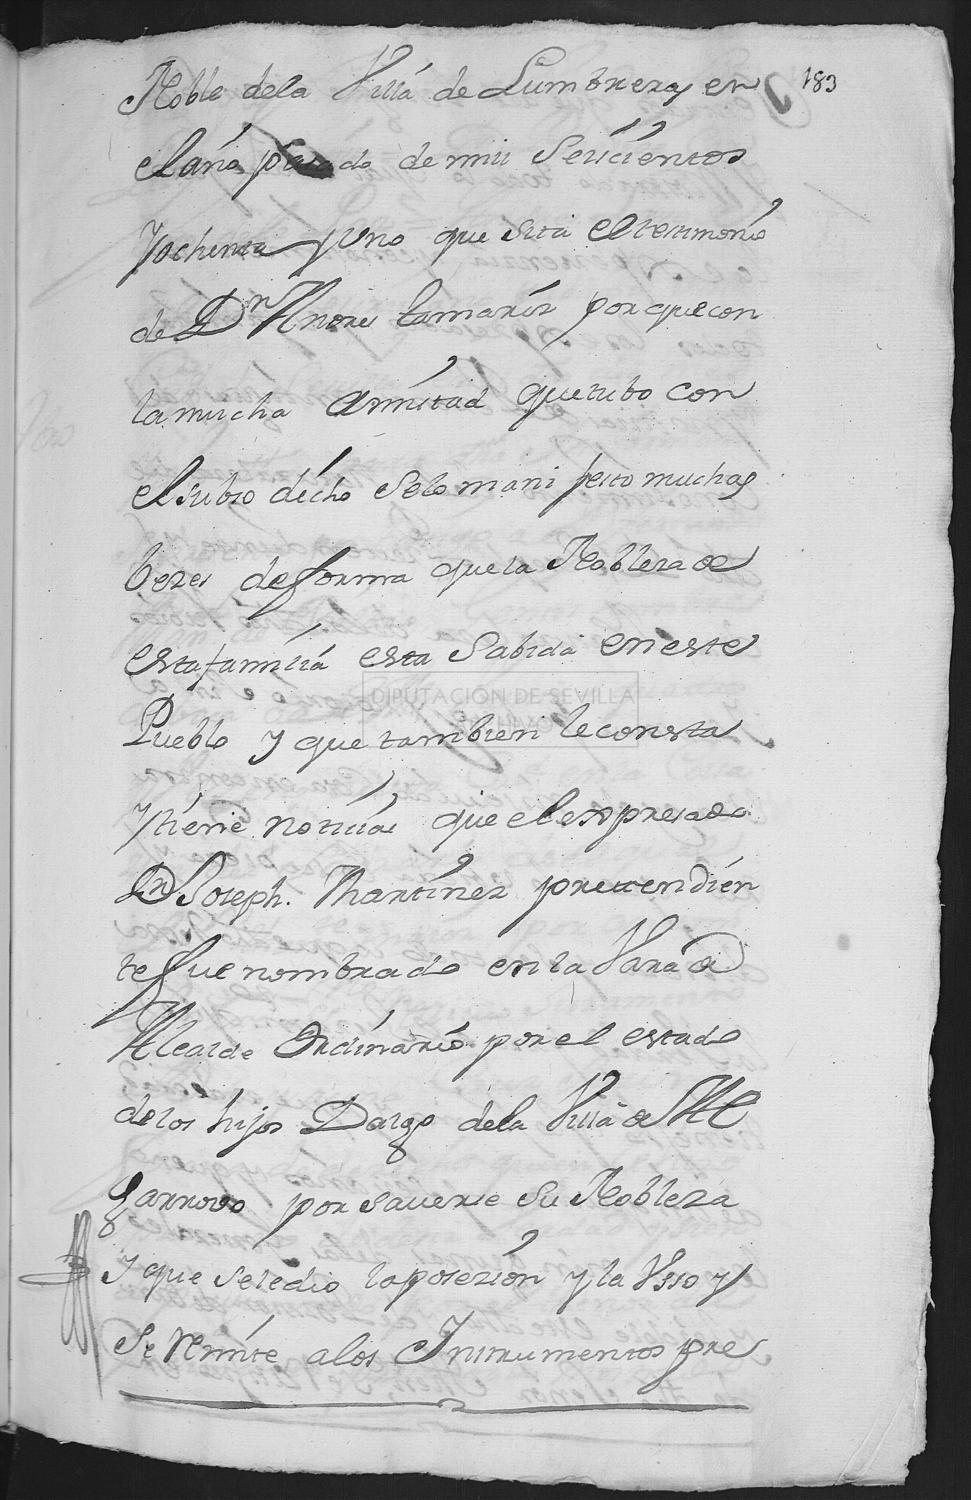 183
Noble dela Villa de Lumbreras en
el año pasado de mil Seiscientos
y ochenta y uno que Sita el testimonio
de Dn Andres tamariz por que con
la mucha Amistad que tubo con
el subso dicho Selo mani festo muchas
bezes de forma que la Nobleza de
esta familia esta Sabida en este
Pueblo y que tambien le consta
y tiene noticias que el expresado
Dn Joseph. Martinez prettendien
te fue nombrado en la Vara de
Alcalde Ordinario por el estado
de los hijos Dalgo dela Villa de Al
garrovo por saverse Su Nobleza
y que Seledio la posezion y la Usso y
Se Remite a los Instrumentos pre
DIPUTACIÓN DE SEVILLA
ARCHIVO